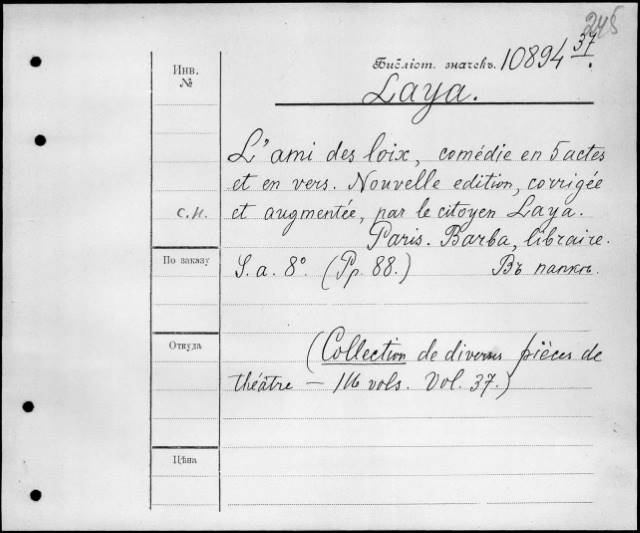 245
Библіот. значекъ. 10894 37
Инв.
№
Laya.
L'ami des loix, comédie en 5 actes
et en vers. Nouvelle edition, corrigée
с.н. et augmentée, par le citoyen Laya.
Paris. Barba, libraire.
По заказу
S. a. 8° (Pp. 88.) Въ папкѣ.
Откуда
(Collection de diverses pièces de
théâtre — 116 vols. Vol. 37.)
Цѣна